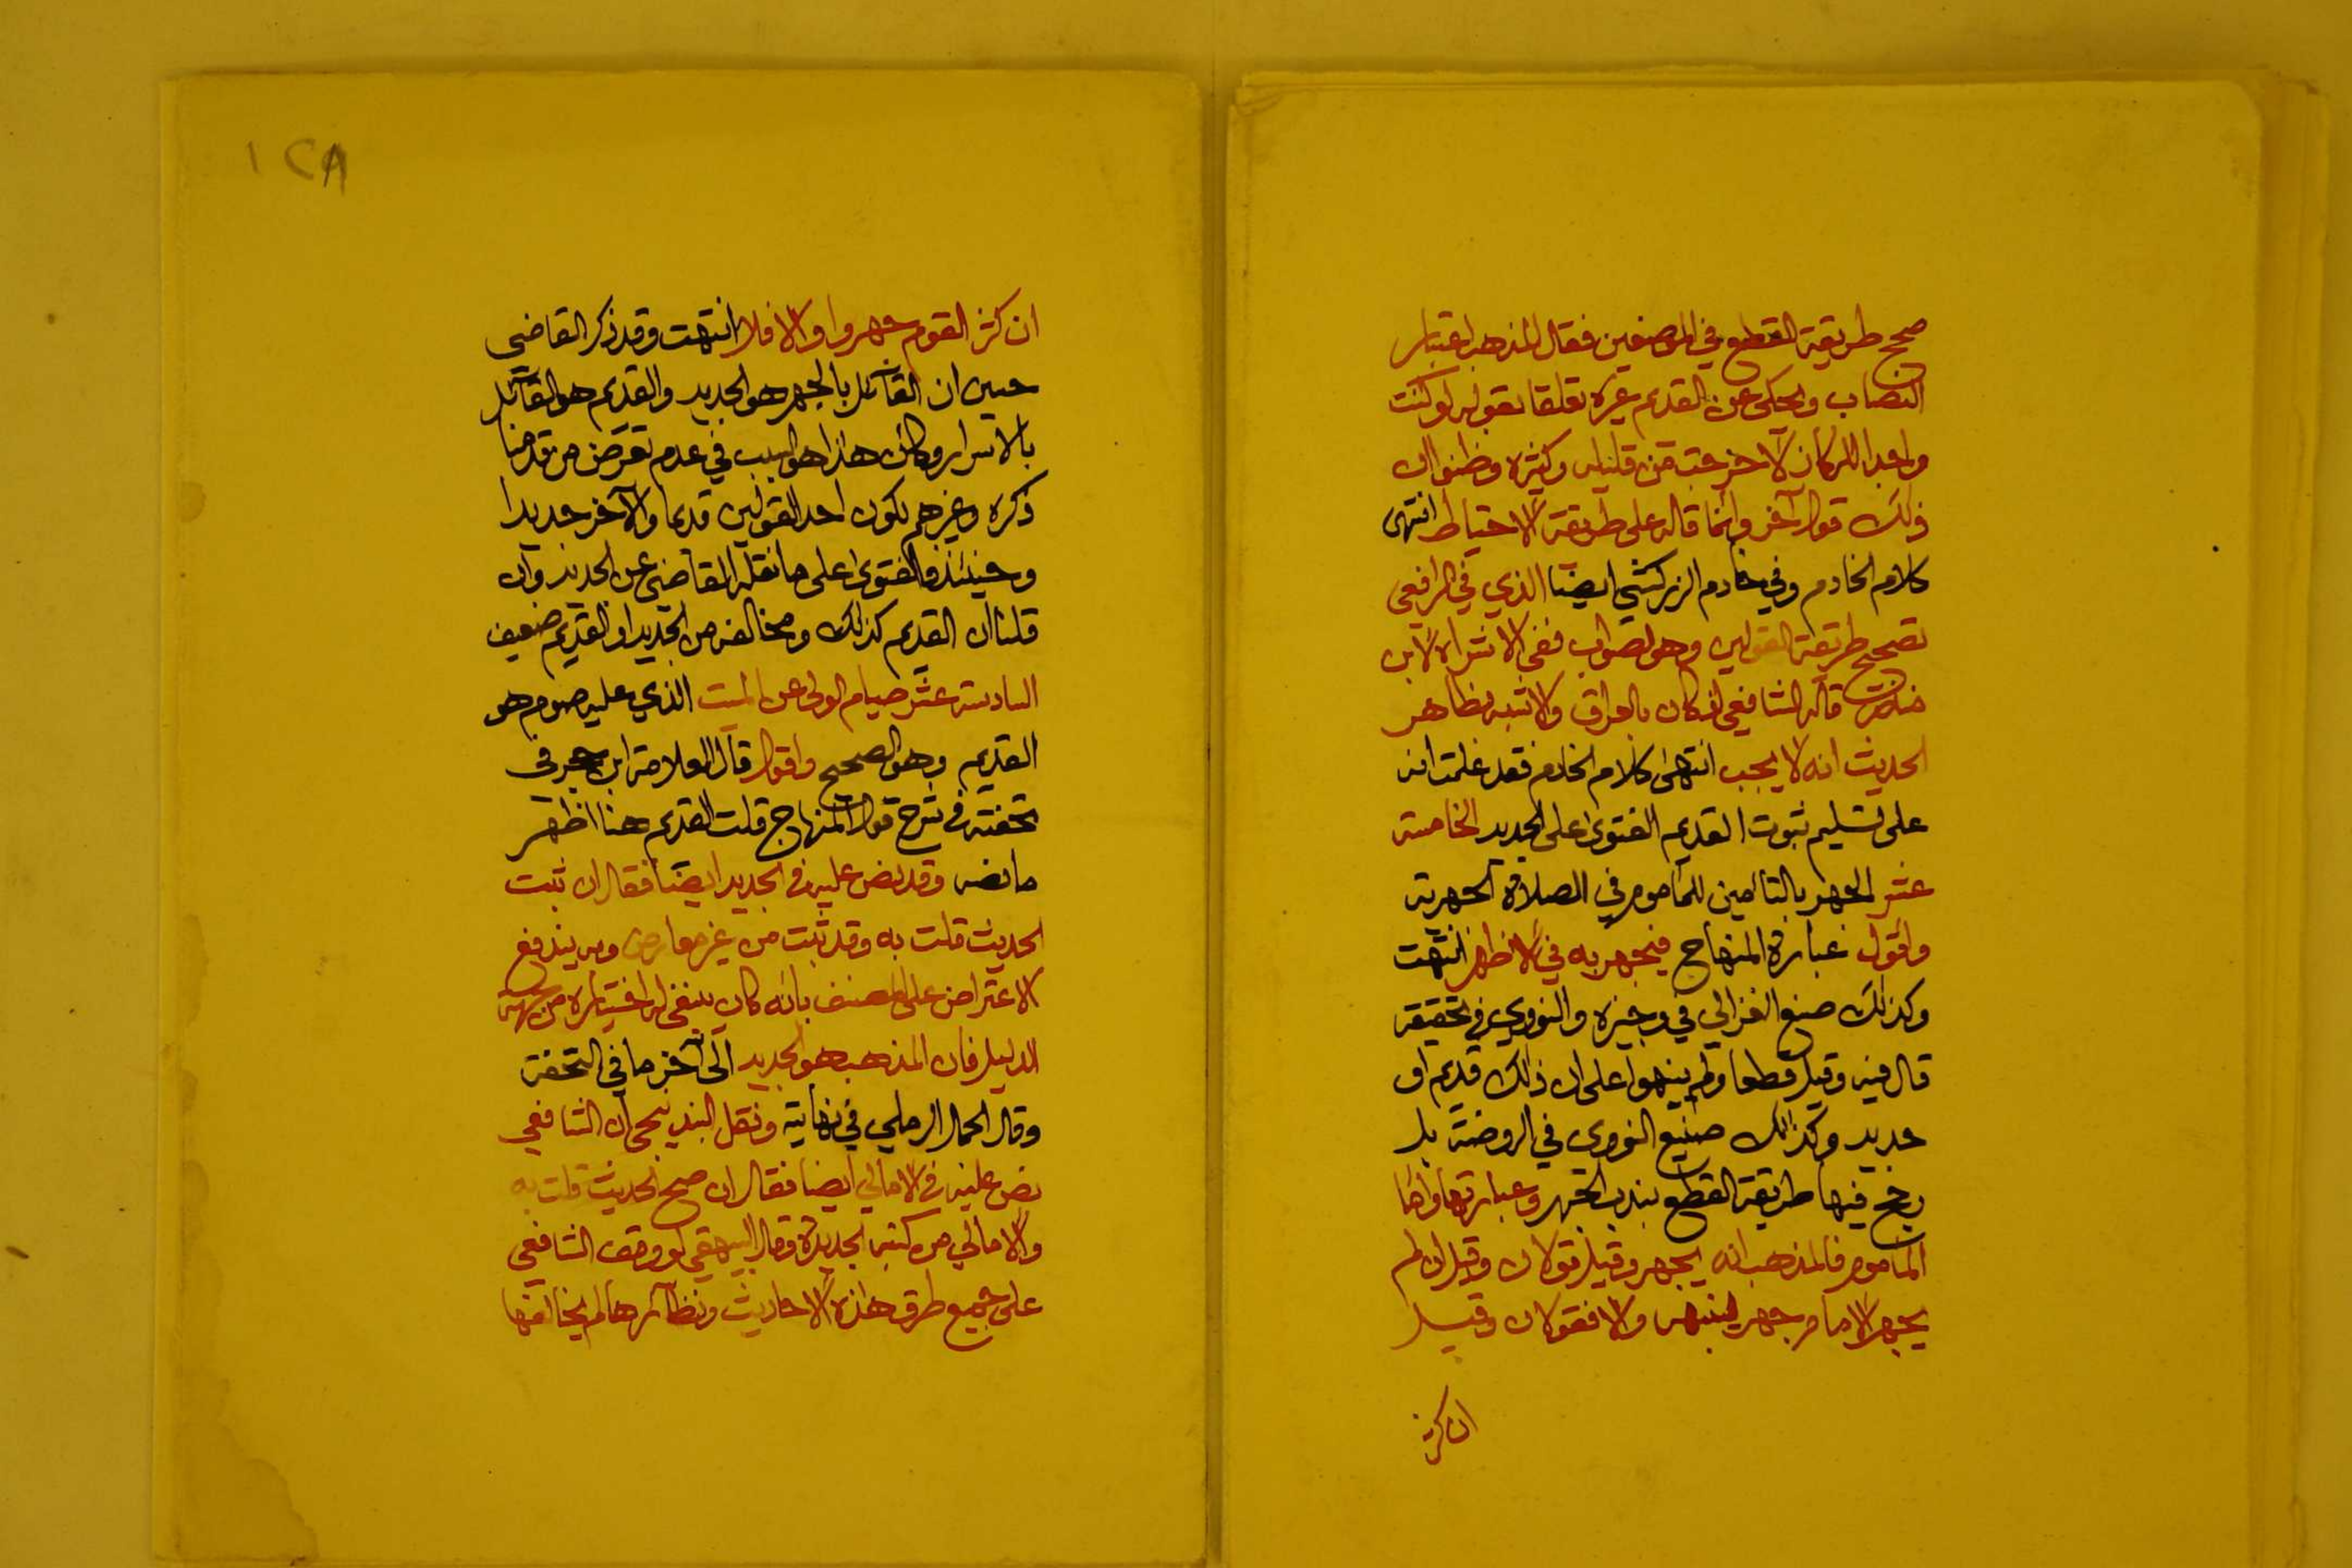 صحح طريقة القطع في الموضعين فقال المذهب اعتبار
النصاب ويحكى عن القديم غيره تعلقا بقوله لو كنت
واجدا للركاز لاخرجت من قليله وكثيره وظنوا ان
ذلك قول آخر وانما قاله على طريقة الاحتياط انتهى
كلام الخادم وفي خادم الزركشي ايضا الذي في الرافعي
تصحيح طريقة القولين وهو الصواب ففي الاشراف لابن
المنذر قال الشافعي اذ كان بالعراق والاشبه بظاهر
الحديث انه لا يجب انتهى كلام الخادم فقد علمت انه
على تسليم ثبوت القديم الفتوى على الجديد الخامسة
عشر الجهر بالتأمين للمأموم في الصلاة الجهرية
واقول عبارة المنهاج فيجهر به في الاظهر انتهت
وكذلك صنع الغزالي في وجيزه والنووي في تحقيقه
قال فيه وقيل قطعا ولم ينبهوا على ان ذلك قديم او
جديد وكذلك صنيع النووي في الروضة بل
رجح فيها طريقة القطع بندب الجهر وعبارتها واما
المأموم فالمذهب انه يجهر وقيل قولان وقيل ان لم
يجهر الامام جهر لينبهه والا فقولان وقيل
ان كثر
١٢٨
ان كثر القوم جهروا والا فلا انتهت وقد ذكر القاضي
حسين ان القائل بالجهر هو الجديد والقديم هو القائل
بالاسرار وكان هذا هو السبب في عدم تعرض من قدمنا
ذكره وغيرهم بكون احد القولين قديما والآخر جديدا
وحينئذ فالفتوى على ما نقله القاضي عن الجديد وان
قلنا ان القديم كذلك ومخالفه من الجديد او القديم ضعيف
السادسة عشر صيام الولي عن الميت الذي عليه صوم هو
القديم وهو الصحيح واقول قال العلامة ابن حجر في
تحفته في شرح قول المنهاج قلت القديم هنا اظهر
ما نصه وقد نص عليه في الجديد ايضا فقال ان ثبت
الحديث قلت به وقد ثبت من غير معارض وبه يندفع
الاعتراض على المصنف بانه كان ينبغي له اختياره من جهة
الدليل فان المذهب هو الجديد الى آخر ما في التحفة
وقال الجمال الرملي في نهايته ونقل البندنيجي ان الشافعي
نص عليه في الامالي ايضا فقال ان صح الحديث قلت به
والامالي من كتبه الجديدة وقال البيهقي لو وقف الشافعي
على جميع طرق هذه الاحاديث ونظائرها لم يخالفها